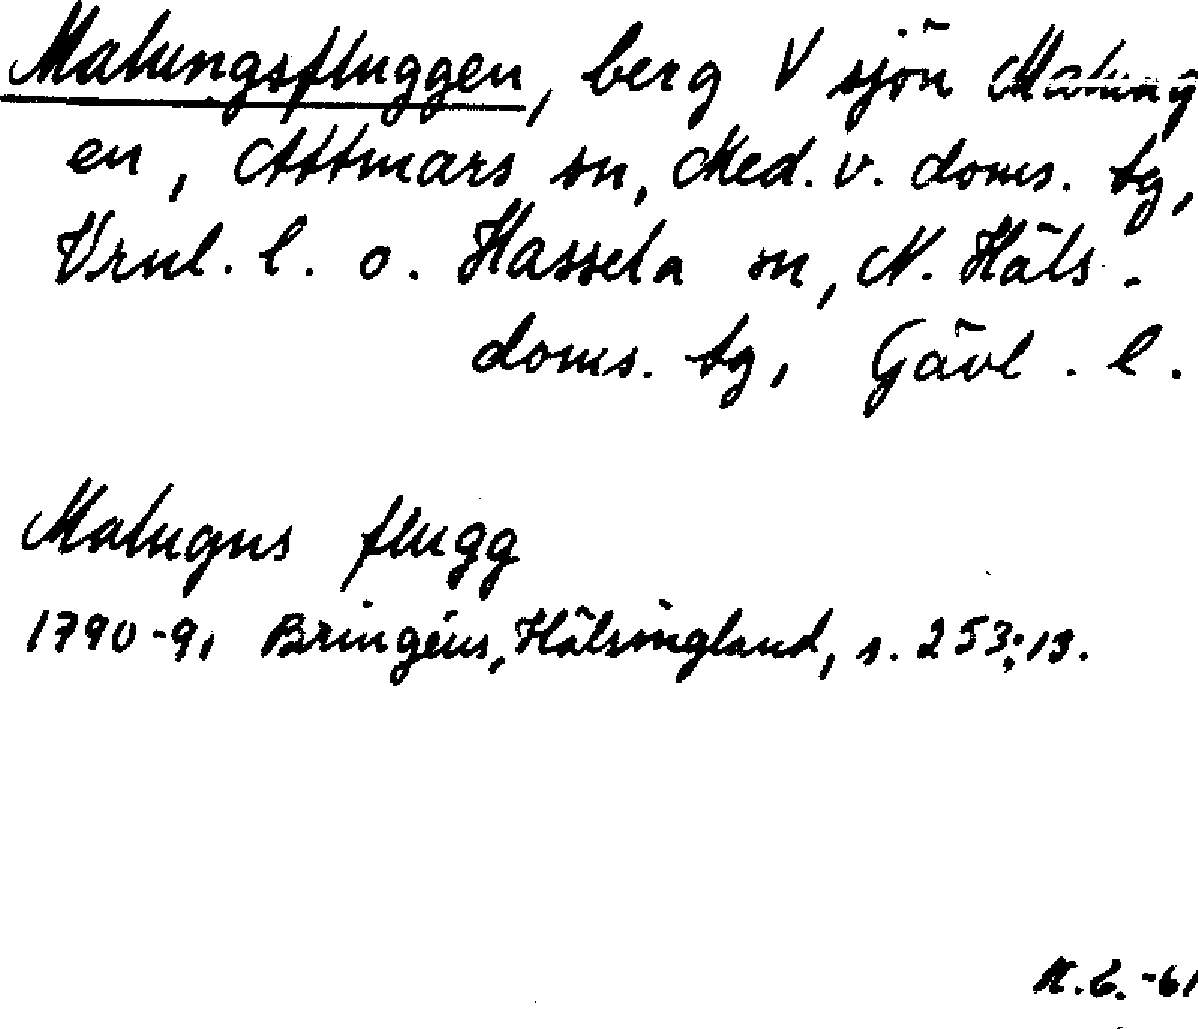 Malungsfluggen, berg V sjön Malung
en, Attmars sn, Med. v. doms. tg,
Vrnl. l. o. Hassela sn, N. Häls.
doms. tg, Gävl. l.
Malugns flugg
1790-91 Bringéus, Hälsingland, s. 253:13.
-61